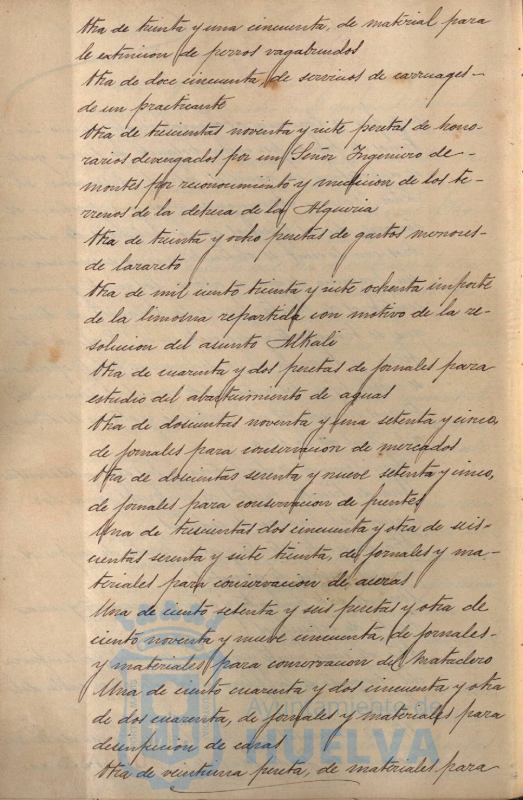 Otra de treinta y una cincuenta, de material para
le extincion de perros vagabundos
Otra de doce cincuenta, de servicios de carruages-
de un practicante
Otra de trescientas noventa y siete pesetas de hono-
rarios devengados por un Señor Ingeniero de-
montes por reconocimiento y medicion de los te-
rrenos de la dehesa de la Alqueria
Otra de treinta y ocho pesetas de gastos menores-
de lazareto
Otra de mil ciento treinta y siete ochenta importe
de la limosna repartida con motivo de la re-
solucion del asunto Alkali
Otra de cuarenta y dos pesetas de jornales para
estudio del abastecimiento de aguas
Otra de doscientas noventa y una setenta y cinco,
de jornales para conservacion de mercados
Otra de doscientas sesenta y nueve setenta y cinco,
de jornales para conservacion de fuentes
Una de trescientas dos cincuenta y otra de seis-
cientas sesenta y siete treinta, de jornales y ma-
teriales para conservacion de aceras
Una de ciento setenta y seis pesetas y otra de
ciento noventa y nueve cincuenta, de jornales-
y materiales para conservacion del Matadero
Una de ciento cuarenta y dos cincuenta y otra
de dos cuarenta, de jornales y materiales para
desinfeccion de casas
Otra de veintiuna peseta, de materiales para
Ayuntamiento de
HUELVA